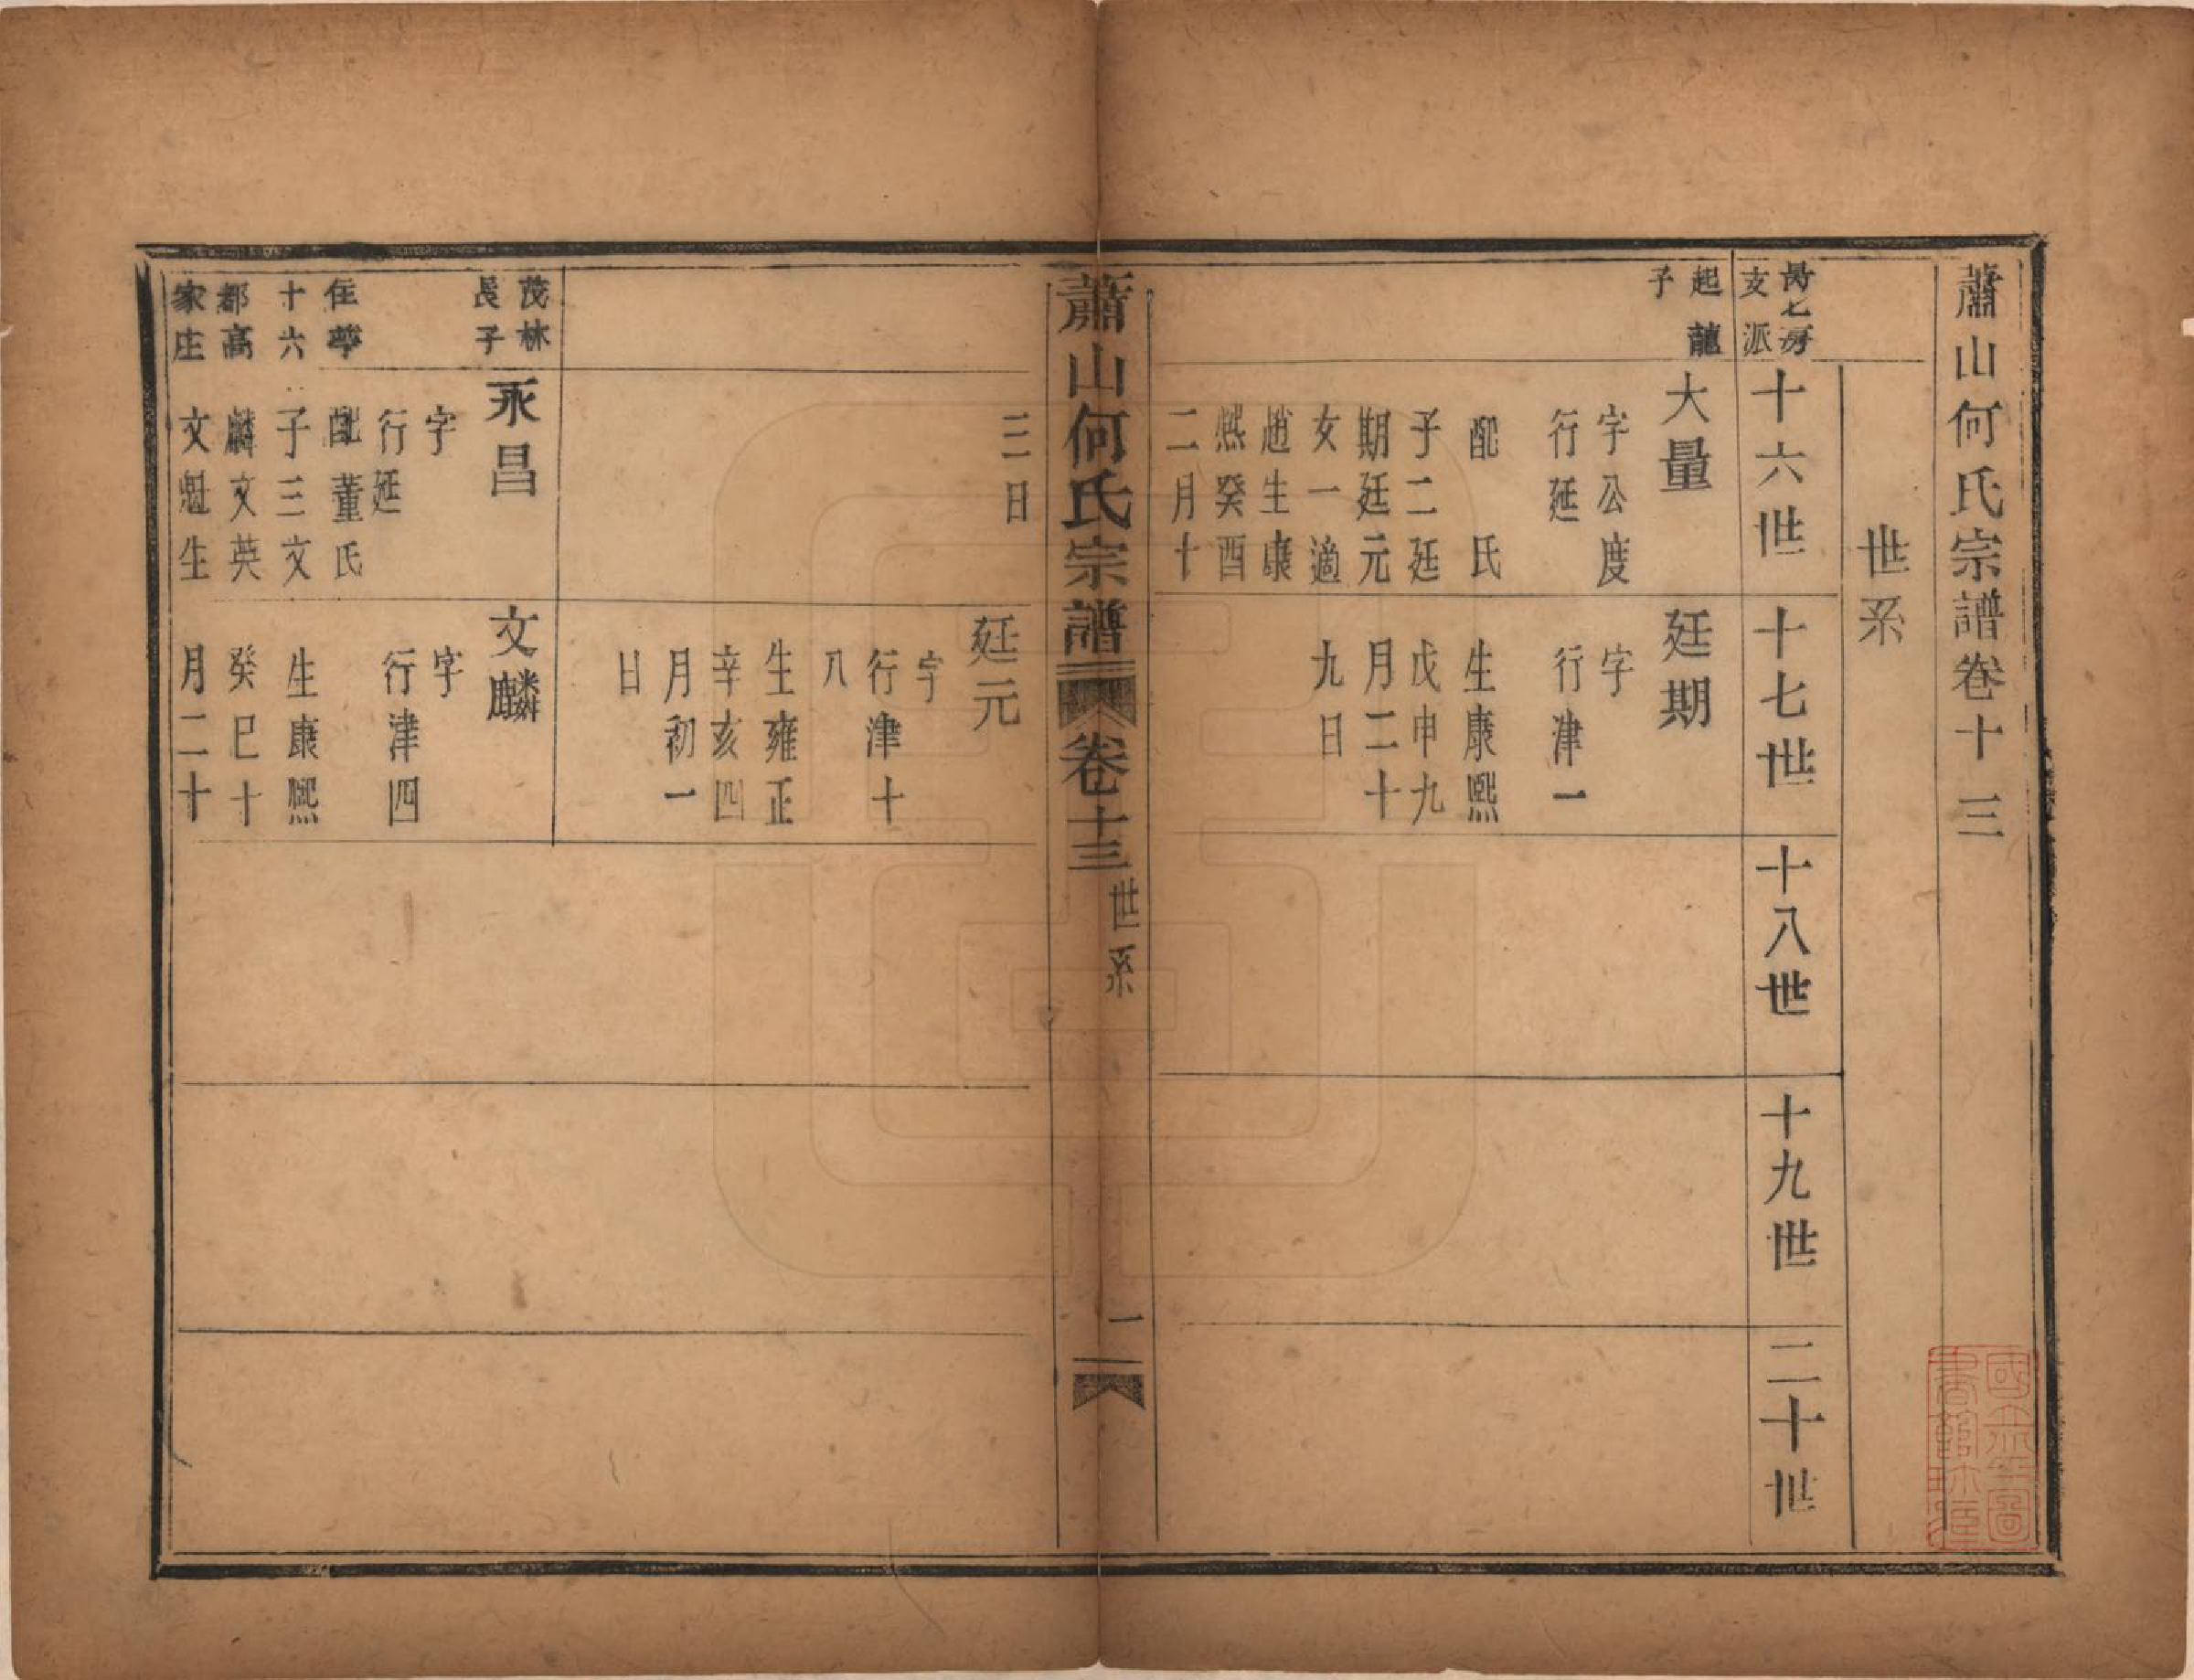 蕭山何氏宗譜卷十三
世系
支派
十六世
十七世
十八世
十九世
二十世
起龍
子
大量
字公度
行延
配　氏
子二廷
期廷元
女一適
趙生康
熙癸酉
二月十
廷期
字
行津一
生康熙
戊申九
月二十
九日
蕭山何氏宗譜
卷十三
世系
一
三日
廷元
字
行津十
八
生雍正
辛亥四
月初一
日
茂林
長子
住莘
十六
都高
家庄
永昌
字
行延
配董氏
子三文
麟文英
文魁生
文麟
字
行津四
生康熙
癸巳十
月二十